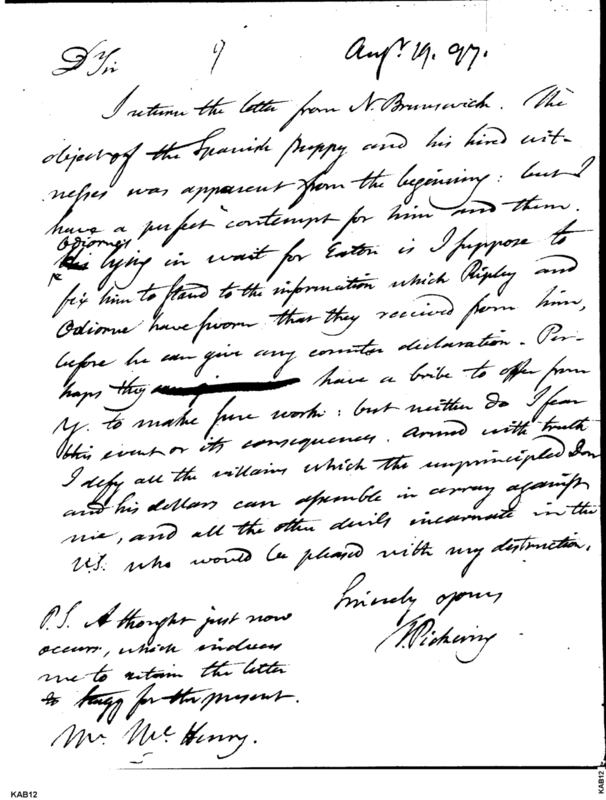 Augt. 19. 97.
Dr Sir
I return the letter from N. Brunswick. The
object of the Spanish puppy and his hired wit-
nesses was apparent from the beginning: but I
have a perfect contempt for him and them.
Odiorne's
lying in wait for Eaton is I suppose to
fix him to stand to the information which Ripley and
Odiorne have sworn that they received from him,
before he can give any counter declaration. Per-
haps they have a bribe to offer from
Y. to make sure work: but neither do I fear
this event or its consequences. Armed with truth
I defy all the villains which the unprincipled Don
and his dollars can assemble in array against
me, and all the other devils incarnate in the
U.S. who would be pleased with my destruction.
Sincerely yours
T. Pickering
P.S. A thought just now
occurs, which induces
me to retain the letter
to Stagg for the present.
Mr. McHenry.
KAB12
KAB12